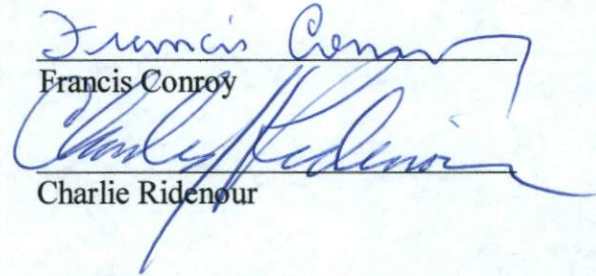 Francis Conroy
Francis Conroy
Charlie Ridenour
Charlie Ridenour